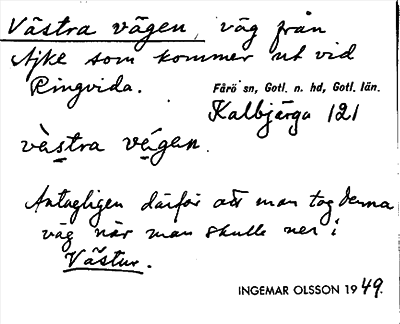 Västra vägen, väg från
Ajke som kommer ut vid
Ringvida.
Fårö sn, Gotl. n. hd, Gotl. län.
Kalbjärga 121
västra vägen.
Antagligen därför att man tog denna
väg när man skulle ner i
Västur.
INGEMAR OLSSON 1949.